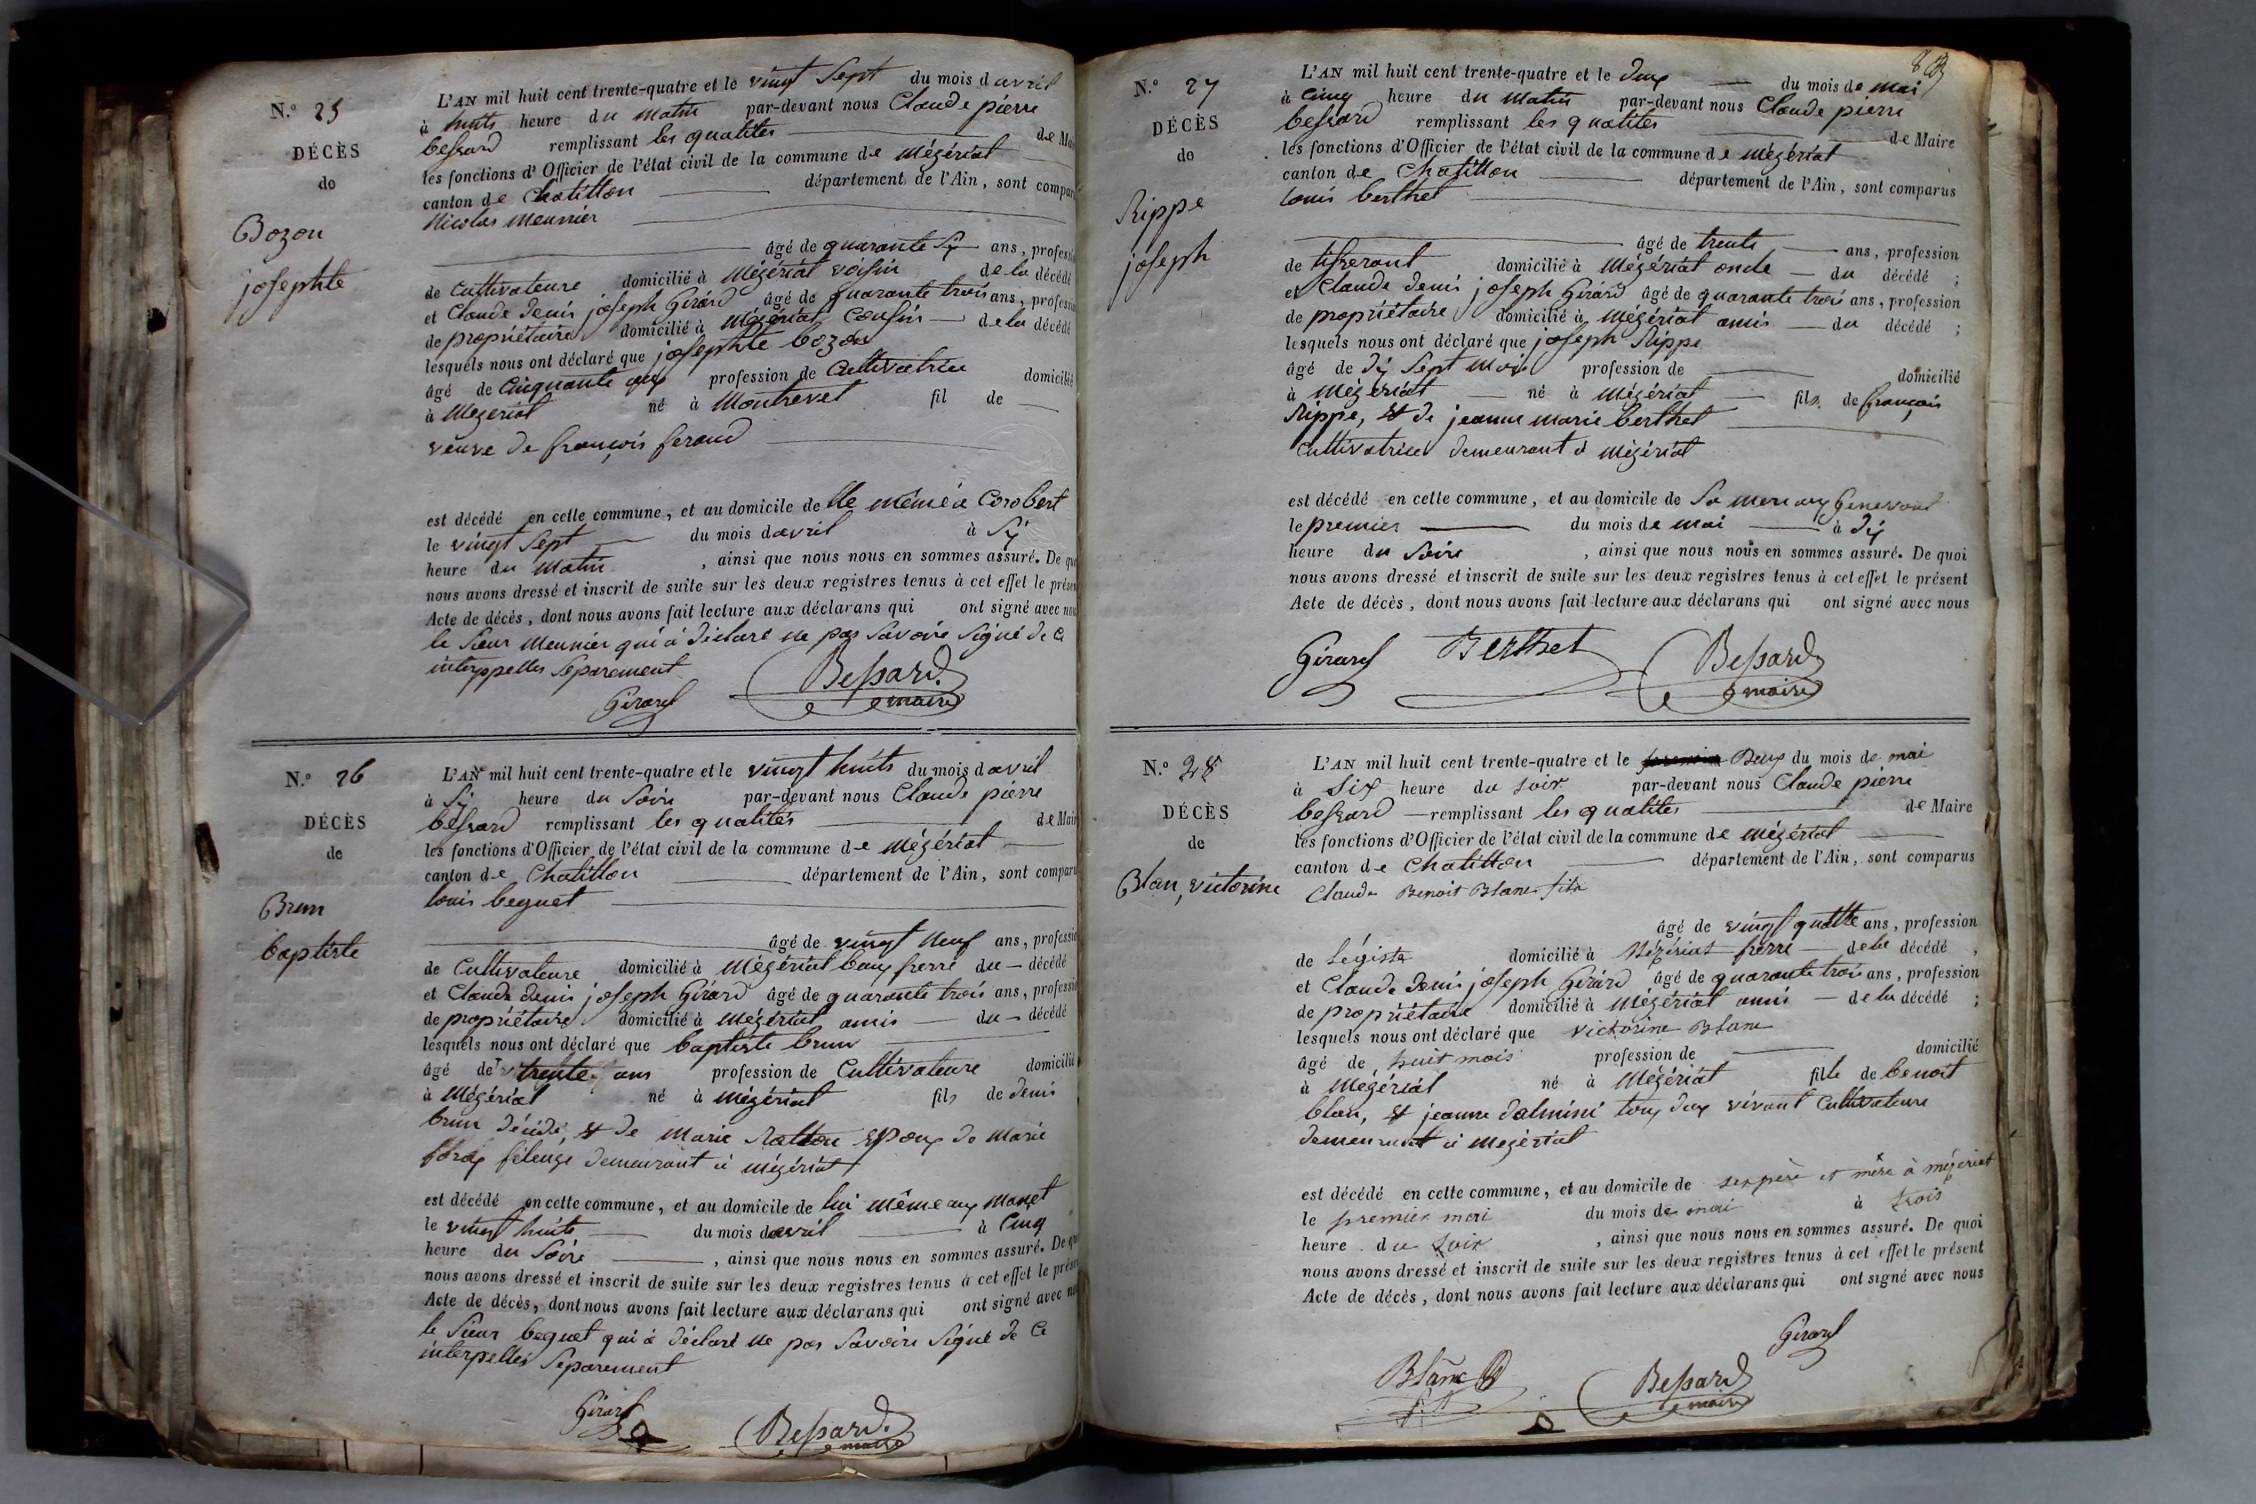 N.º 25
DÉCÈS
de
Bozon
josephte
L'AN mil huit cent trente-quatre et le vingt sept du mois d avril
à huits heure du matin par-devant nous Claude pierre
bessard remplissant les qualites de Mai
les fonctions d'Officier de l'état civil de la commune de Mézériat
canton de Chatillon département de l'Ain, sont compar
Nicolas Meunier
âgé de quarante six ans, professi
de cultivateure domicilié à Mézériat voisin de la décédé
et Claude denis joseph Girard âgé de quarante trois ans, professi
de propriétaire domicilié à Mézériat Cousin de la décédé
lesquels nous ont déclaré que josephte bozon
âgé de cinquante profession de Cultivatrice domicilié
à Mézériat né à Montrevel fil de
veuve de françois feraud
est décédé en cette commune, et au domicile de lle même à Corobert
le vingt sept du mois d avril à six
heure du matin, ainsi que nous nous en sommes assuré. De qu
nous avons dressé et inscrit de suite sur les deux registres tenus à cet effet le présen
Acte de décès, dont nous avons fait lecture aux déclarans qui ont signé avec nou
le sieur Meunier qui à déclaré ne pas savoire signé de ce
interppelles separement
Girard Bessard
maire
N.º 26
DÉCÈS
de
Brun
baptiste
L'AN mil huit cent trente-quatre et le vingt huits du mois d avril
à six heure du soire par-devant nous Claude pierre
bessard remplissant les qualités de Mair
les fonctions d'Officier de l'état civil de la commune de Mézériat
canton de Chatillon département de l'Ain, sont comparu
louis beguet
âgé de vingt neuf ans, professi
de Cultivateure domicilié à Mézériat baux frerre du décédé
et Claude denis joseph Girard âgé de quarante trois ans, professi
de propriétaire domicilié à Mézériat amis du décédé
lesquels nous ont déclaré que baptiste brun
âgé de trente ans profession de Cultivateure domicilié
à Mézériat né à mézériat fils de denis
brun décédé, et de Marie Ratton Epoux de Marie
félenge demeurant à mézériat
est décédé en cette commune, et au domicile de lui même aux Manet
le vingt huits du mois d avril à Cinq
heure du Soire, ainsi que nous nous en sommes assuré. De qu
nous avons dressé et inscrit de suite sur les deux registres tenus à cet effet le présen
Acte de décès, dont nous avons fait lecture aux déclarans qui ont signé avec no
le sieur beguet qui à déclaré ne pas savoire signé de ce
interpellés separement
Girard
Bessard
maire
N.º 27
DÉCÈS
de
Rippe
joseph
L'AN mil huit cent trente-quatre et le deux du mois de mai
à Cinq heure du matin par-devant nous Claude pierre
bessard remplissant les qualites de Maire
les fonctions d'Officier de l'état civil de la commune de mézériat
canton de Chatillon département de l'Ain, sont comparus
louis berthet
âgé de trente ans, profession
de tisserant domicilié à Mézériat oncle du décédé ;
et Claude denis joseph Girard âgé de quarante trois ans, profession
de propriétaire domicilié à Mézériat amis du décédé ;
lesquels nous ont déclaré que joseph Rippe
âgé de dix sept mois profession de domicilié
à mézériat né à mézériat fils de françois
Rippe, et de jeanne marie berthet
Cultivatrice demeurant à mézériat
est décédé en cette commune, et au domicile de sa mere aux
le premier du mois de mai à dix
heure du soire, ainsi que nous nous en sommes assuré. De quoi
nous avons dressé et inscrit de suite sur les deux registres tenus à cet effet le présent
Acte de décès, dont nous avons fait lecture aux déclarans qui ont signé avec nous
Girard Berthet Bessard
maire
N.º 28
DÉCÈS
de
Blan, victorine
L'AN mil huit cent trente-quatre et le premier Deux du mois de mai
à six heure du soir par-devant nous Claude pierre
bessard remplissant les qualités de Maire
les fonctions d'Officier de l'état civil de la commune de mézériat
canton de Chatillon département de l'Ain, sont comparus
Claude Benoit Blanc fils
âgé de vingt quatre ans, profession
de Légiste domicilié à Mézériat frerre de la décédé,
et Claude denis joseph Girard âgé de quarante trois ans, profession
de propriétaire domicilié à Mézériat amis de la décédé ;
lesquels nous ont déclaré que victorine Blanc
âgé de huit mois profession de domicilié
à Mézériat né à Mézériat fille de benoit
blan, et jeanne dalmini tous deux vivant Cultivateure
demeurant à mezériat
est décédé en cette commune, et au domicile de ses père et mère à mézériat
le premier mai du mois de mai à trois
heure du soir, ainsi que nous nous en sommes assuré. De quoi
nous avons dressé et inscrit de suite sur les deux registres tenus à cet effet le présent
Acte de décès, dont nous avons fait lecture aux déclarans qui ont signé avec nous
Girard
Blanc Bessard
maire